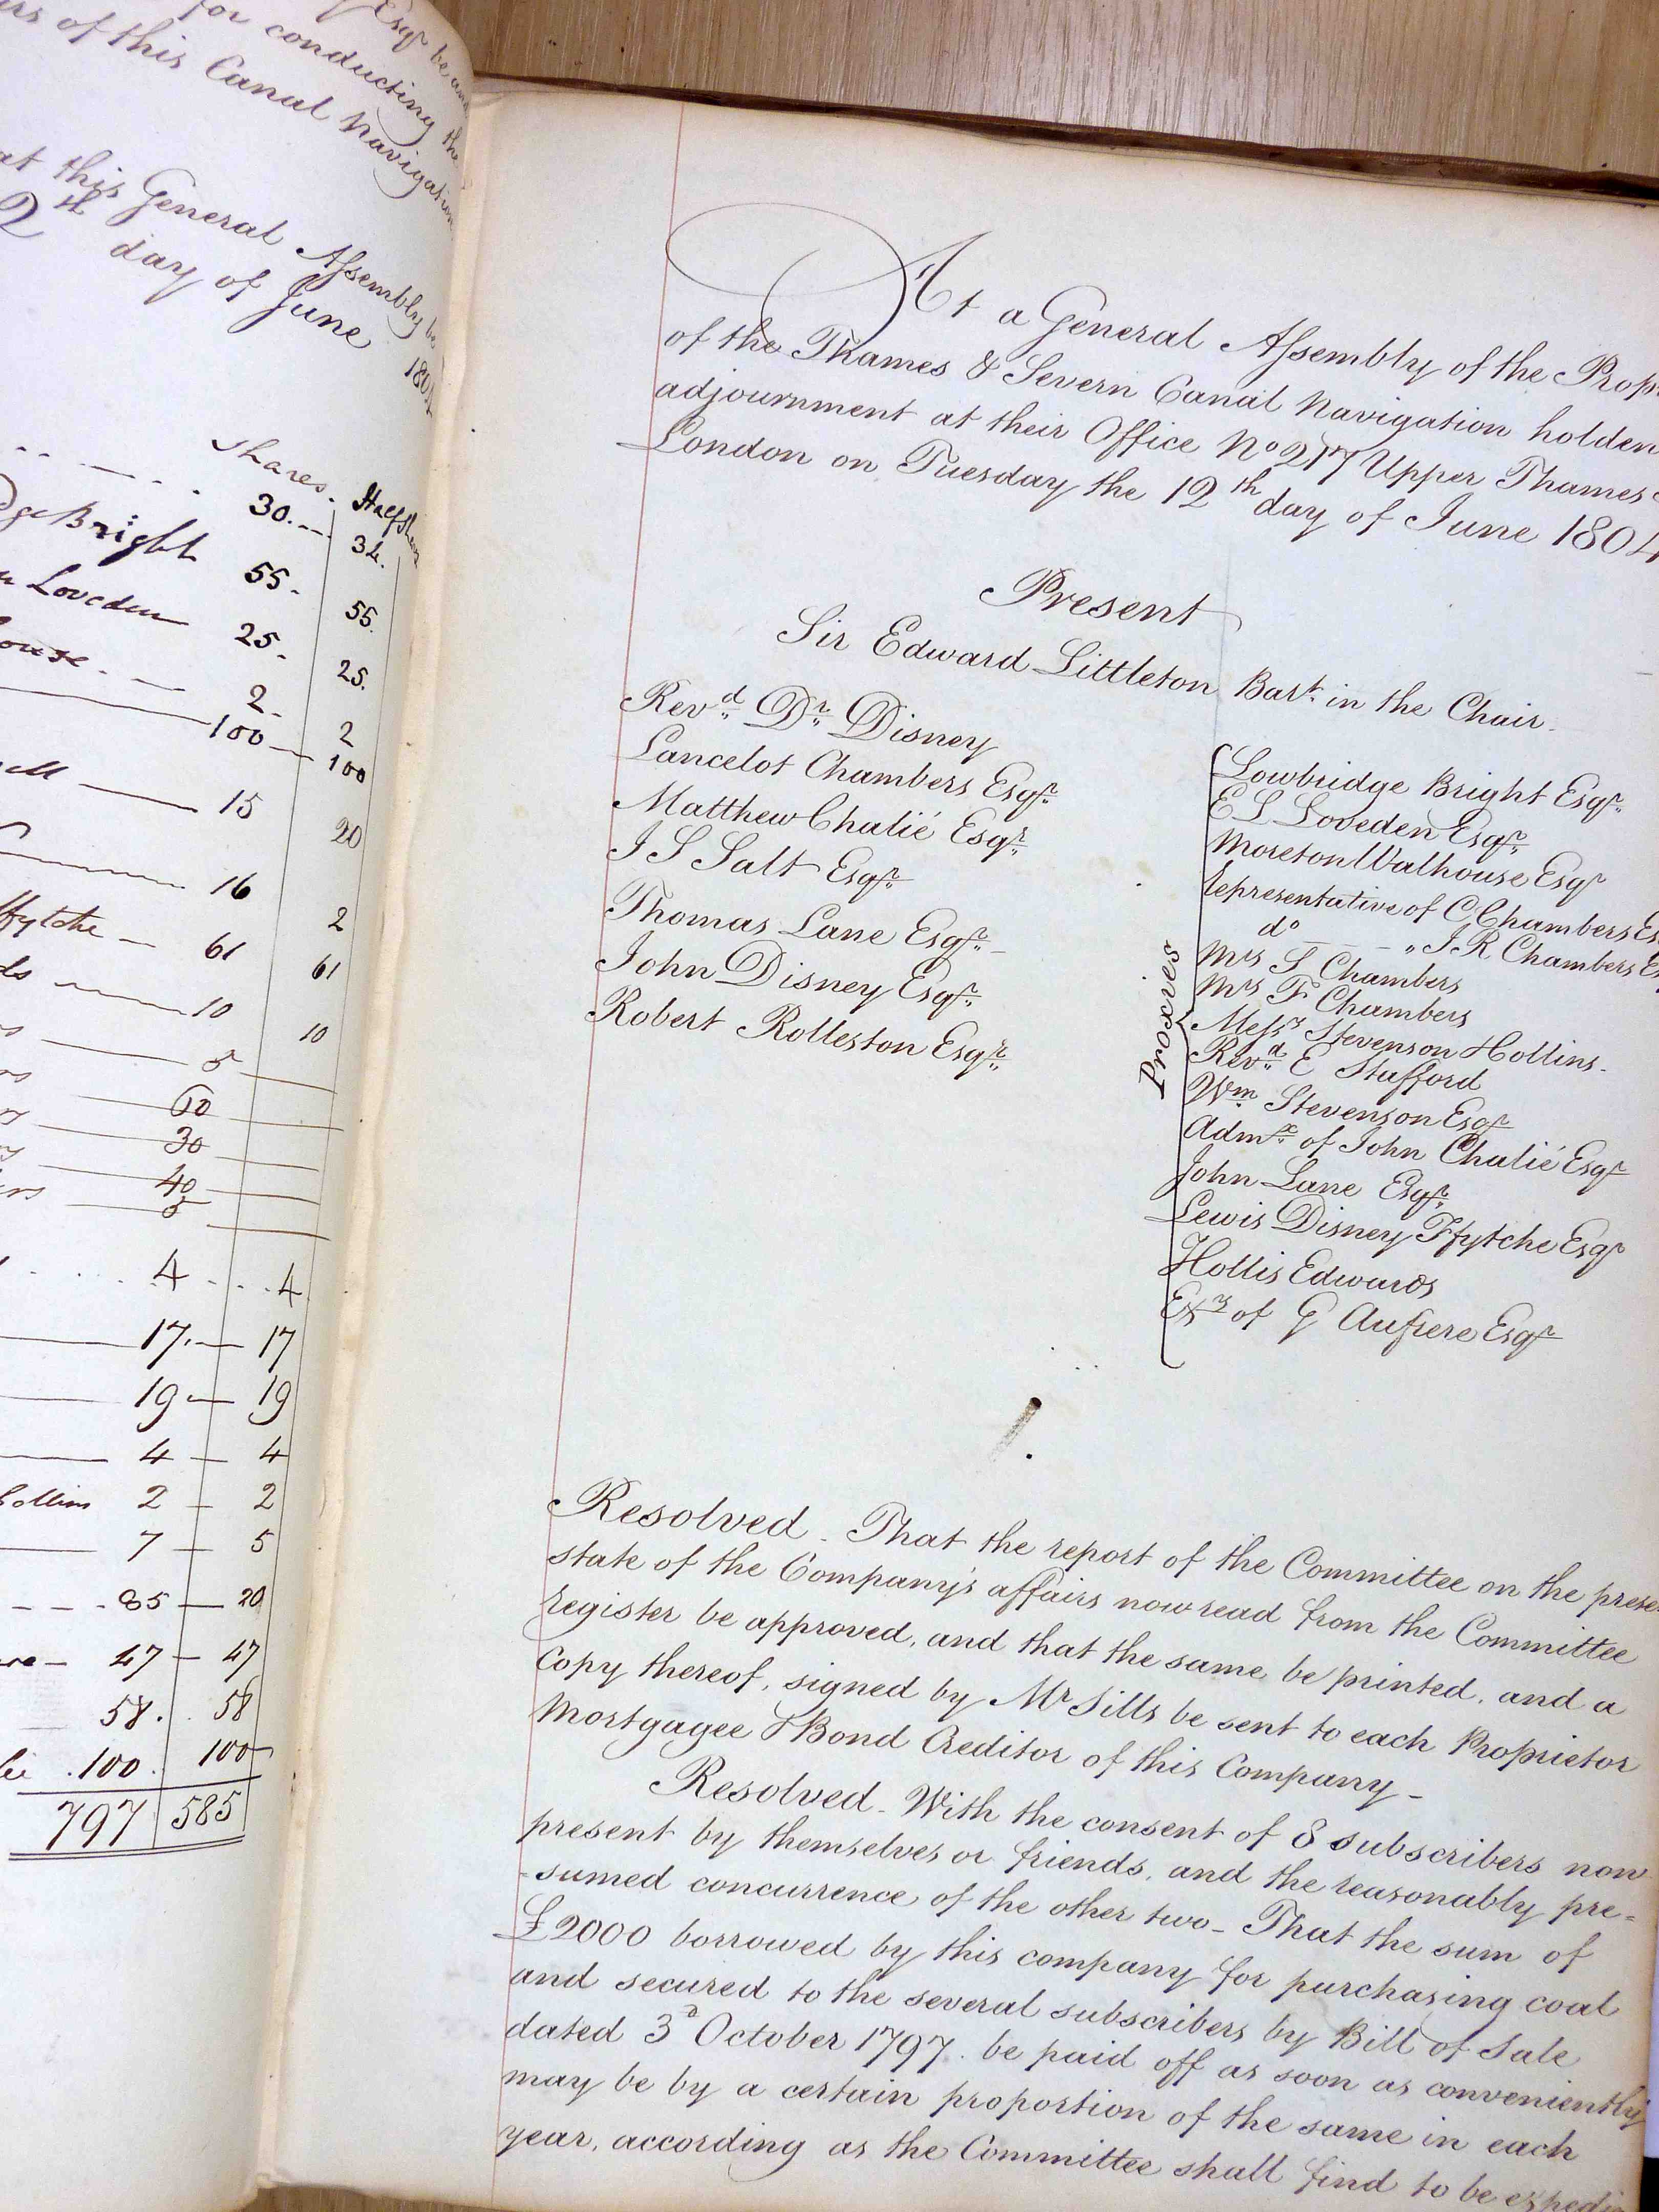 Esqr be
for conducting the
of this Canal Navigation
at this General Assembly be
2th day of June 1804
Shares. Half Shares
30. 32.
Bright 55. 55.
Loveden 25. 25.
2. 2
100 100
15 20
16 2
ffytche 61 61
10 10
5
60
30
40
5
4 4
17. 17
19 19
4 4
Hollins 2 2
7 5
85 20
47 47
58. 58
100. 100
797 585
At a General Assembly of the Prop
of the Thames & Severn Canal Navigation holden
adjournment at their Office No 217 Upper Thames
London on Tuesday the 12th day of June 1804
Present
Sir Edward Littleton Bart. in the Chair.
Revd Dr Disney
Lancelot Chambers Esqr.
Matthew Chalié Esqr.
I S Salt Esqr.
Thomas Lane Esqr.
John Disney Esqr.
Robert Rolleston Esqr.
Proxies
Lowbridge Bright Esqr.
E L Loveden Esqr.
Moreton Walhouse Esqr
Representative of C Chambers Es
do " I R Chambers Es
Mrs S Chambers
Mrs F Chambers
Messrs Stevenson Hollins.
Revd E Stafford
Wm Stevenson Esqr
Admx of John Chalié Esqr
John Lane Esqr.
Lewis Disney Ffytche Esqr
Hollis Edwards
Exrs of G Aufrere Esqr
Resolved. That the report of the Committee on the prese
state of the Company's affairs now read from the Committee
register be approved, and that the same be printed, and a
Copy thereof, signed by Mr Sills be sent to each Proprietor
Mortgagee & Bond Creditor of this Company
Resolved. With the consent of 8 subscribers now
present by themselves or friends, and the reasonably pre=
=sumed concurrence of the other two. That the sum of
£2000 borrowed by this company for purchasing coal
and secured to the several subscribers by Bill of Sale
dated 3d October 1797. be paid off as soon as conveniently
may be by a certain proportion of the same in each
year, according as the Committee shall find to be expedi